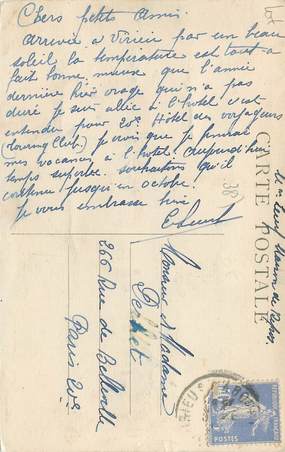 Chers petits Amis.
Arrivée a Virieu par un beau
soleil la température est tout a
fait bonne, mieux que l'année
dernière hier orage qui n'a pas
duré je suis allée à l'hotel c'est
entendu pour 20f Hôtel des voyageurs
(Touring Club) je crois que je finirai
mes vacances à l'hotel aujourd'hui
temps superbe souhaitons qu'il
continue jusqu'en octobre.
je vous embrasse bien
CARTE POSTALE
Monsieur et Madame
266 Rue de Belleville
Paris 20e